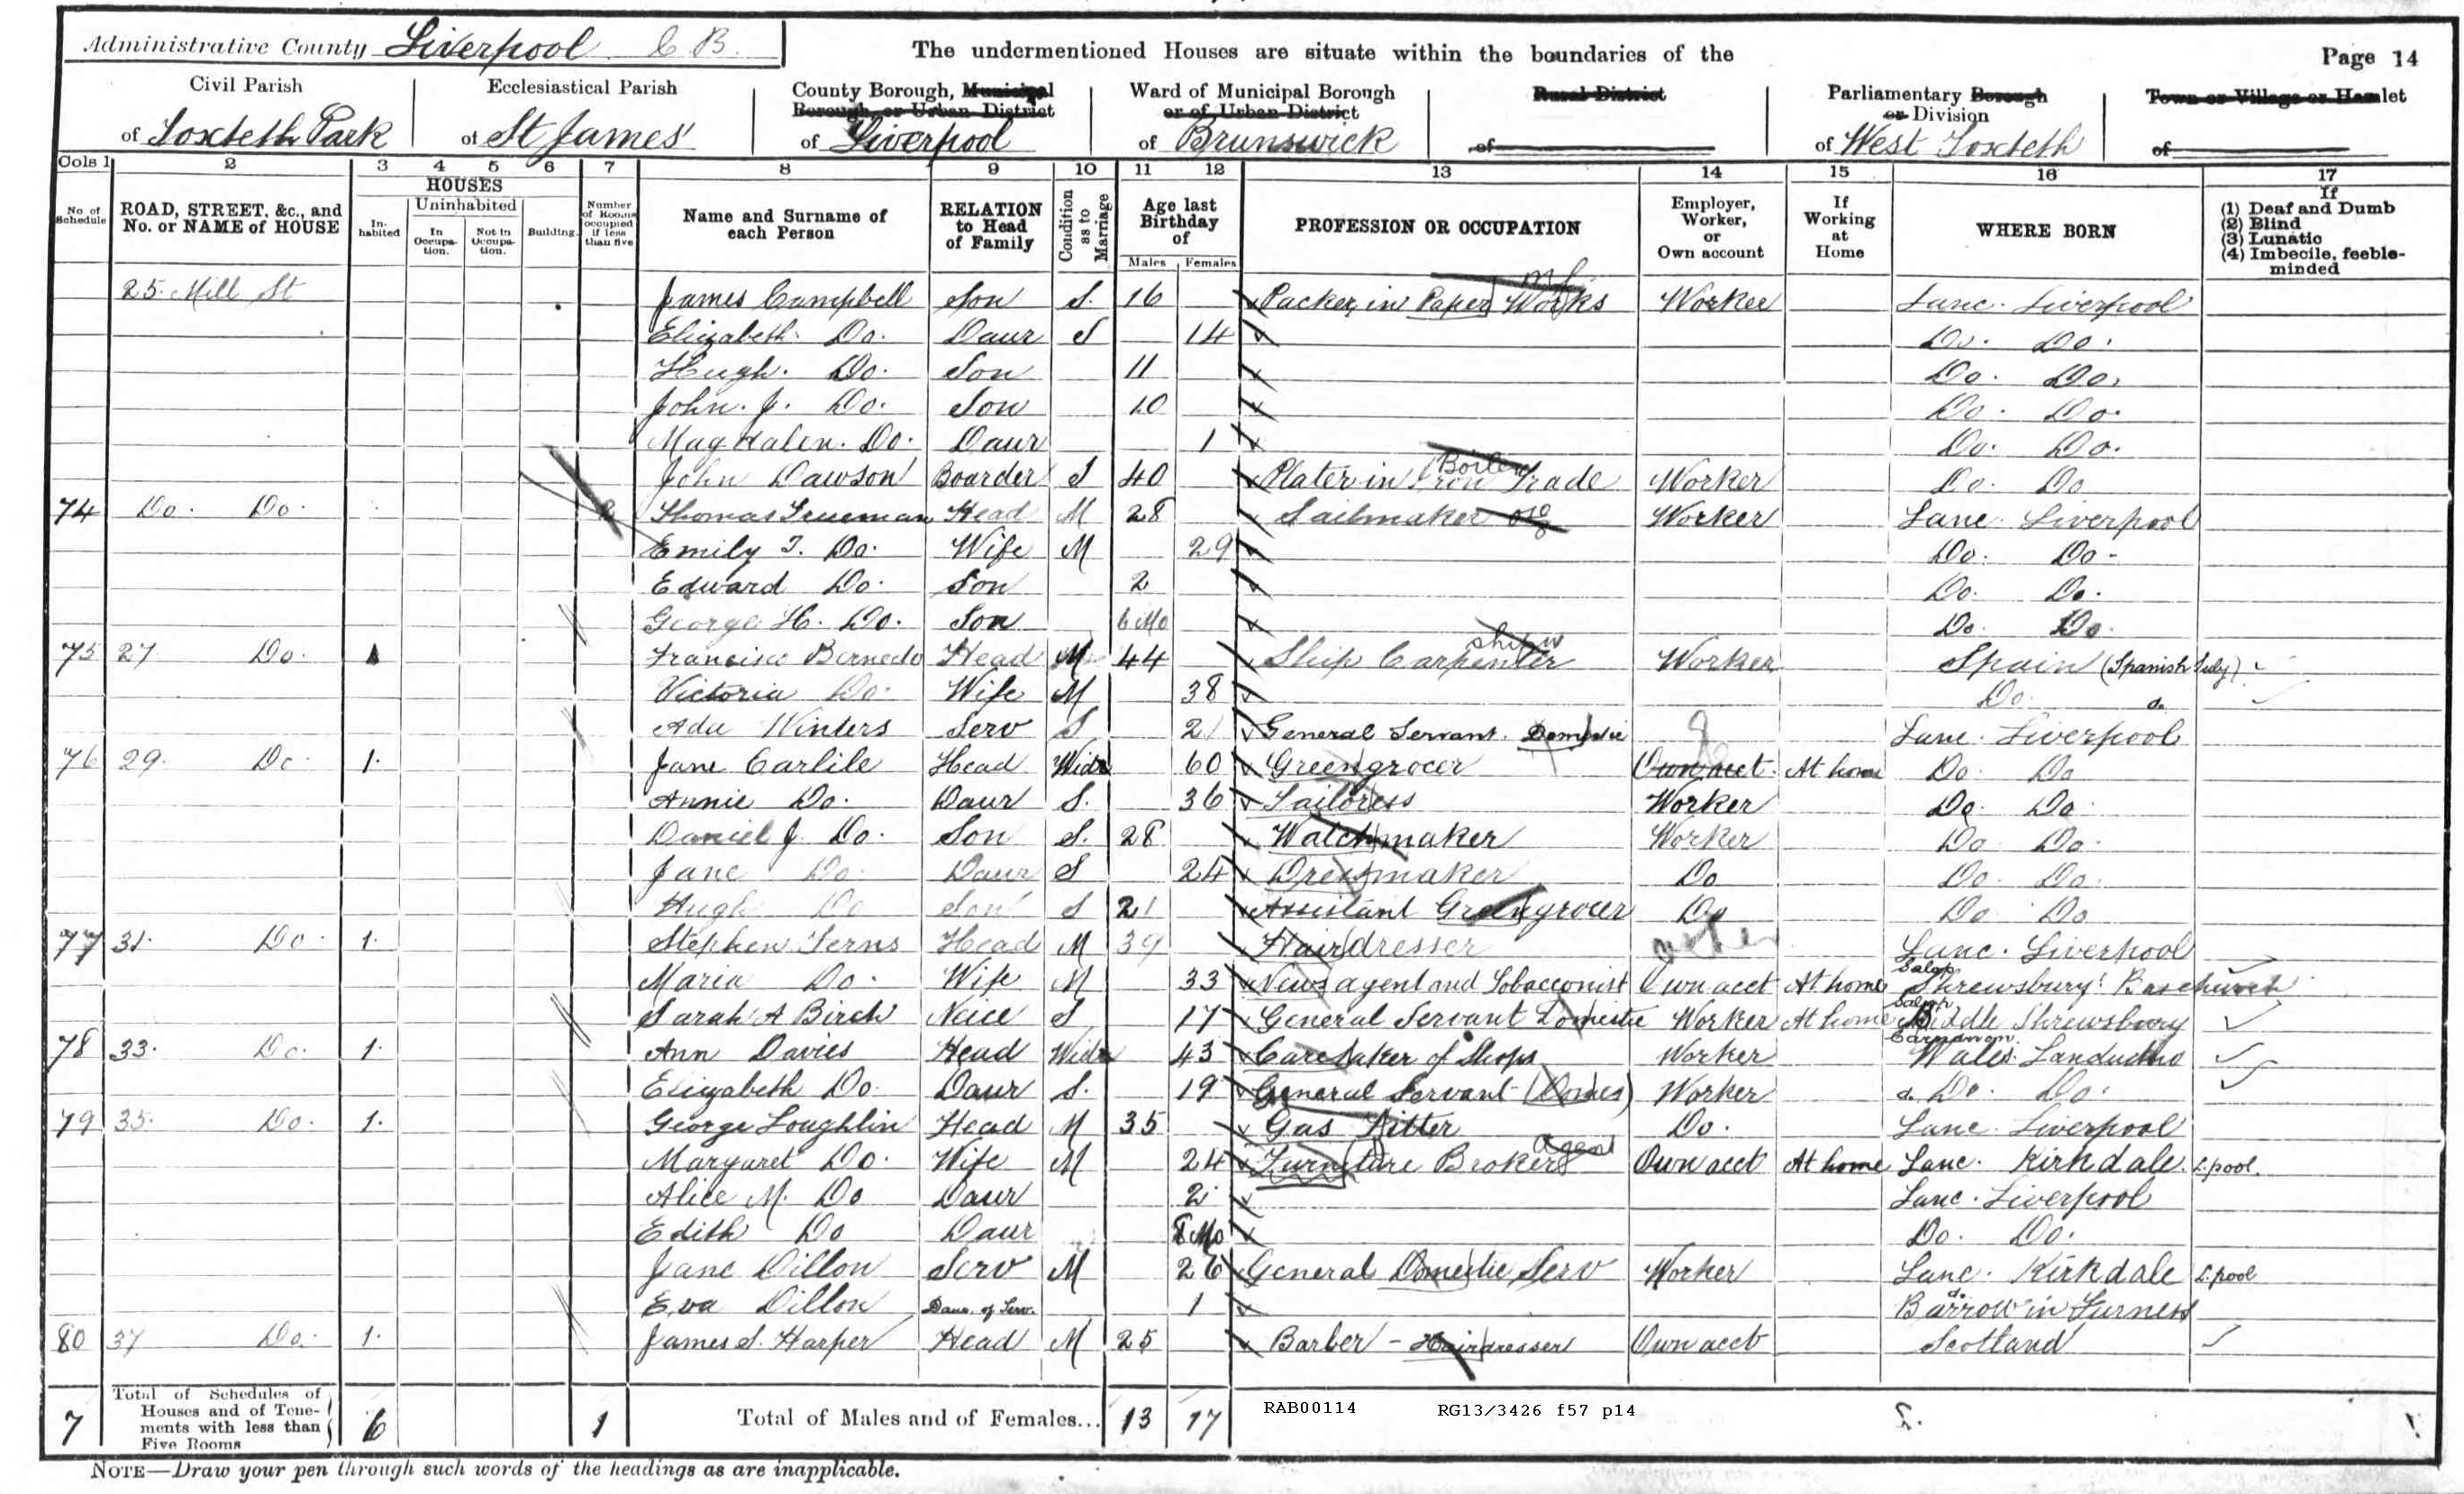 Administrative County Liverpool C B.
The undermentioned Houses are situate within the boundaries of the
Page 14
Civil Parish
of Toxteth Park
Ecclesiastical Parish
of St James'
County Borough, Municipal
Borough, or Urban District
of Liverpool
Ward of Municipal Borough
or of Urban District
of Brunswick
Rural District
of
Parliamentary Borough
or Division
of West Toxteth
Town or Village or Hamlet
of
Cols 1 2 3 4 5 6 7 8 9 10 11 12 13 14 15 16 17
No of Schedule
ROAD, STREET, &c., and No. or NAME of HOUSE
HOUSES
In-habited
Uninhabited
In Occupa-tion.
Not in Occupa-tion.
Building
Number of Rooms occupied if less than five
Name and Surname of each Person
RELATION to Head of Family
Condition as to Marriage
Age last Birthday of
Males Females
PROFESSION OR OCCUPATION
Employer, Worker, or Own account
If Working at Home
WHERE BORN
If
(1) Deaf and Dumb
(2) Blind
(3) Lunatic
(4) Imbecile, feeble-minded
25 Mill St James Campbell Son S. 16 Packer in Paper Works Worker Lanc. Liverpool
Elizabeth Do. Daur S 14 Do. Do.
Hugh. Do. Son 11 Do. Do.
John. J. Do. Son 10 Do. Do.
Magdalen. Do. Daur 1 Do. Do.
John Dawson Boarder S 40 Plater in Iron Boiler Trade Worker Do. Do
74 Do. Do. 2 Thomas Trueman Head M 28 Sailmaker Worker Lanc. Liverpool
Emily J. Do. Wife M 29 Do. Do.
Edward Do. Son 2 Do. Do.
George H. Do. Son 6 Mo Do. Do.
75 27 Do. 1 Francisco Head M 44 Ship Carpenter Worker Spain (Spanish Subj)
Victoria Do. Wife M 38 Do. do.
Ada Winters Serv S 21 General Servant Domestic Lanc. Liverpool
76 29. Do. 1. Jane Carlile Head Widw 60 Greengrocer Own acct. At home Do. Do
Annie Do. Daur S. 36 Tailoress Worker Do. Do.
Daniel J. Do. Son S. 28 Watchmaker Worker Do Do.
Jane Do. Daur S 24 Dressmaker Do Do. Do.
Hugh Do Son S 21 Assistant Greengrocer Do Do Do
77 31. Do. 1. Stephen Ferns Head M 39 Hairdresser Lanc. Liverpool
Maria Do. Wife M 33 Newsagent and Tobacconist Own acct At home Salop Shrewsbury Baschurch
Sarah A Birch Neice S 17 General Servant Domestic Worker At home Salop Middle Shrewsbury
78 33. Do. 1. Ann Davies Head Widw 43 Caretaker of Shops Worker Carnarvon Wales. Landudno
Elizabeth Do. Daur S. 19 General Servant (Domes) Worker do. Do. Do.
79 35. Do. 1. George Loughlin Head M 35 Gas Fitter Do. Lanc. Liverpool
Margaret Do. Wife M 24 Furniture Broker Agent Own acct At home Lanc. Kirkdale. L.pool.
Alice M. Do Daur 2 Lanc. Liverpool
Edith Do Daur 8 Mo Do. Do.
Jane Dillon Serv M 26 General Domestic Serv Worker Lanc. Kirkdale L.pool
Eva Dillon Daur. of Serv. 1 do. Barrow in Furness
80 37 Do. 1. James S. Harper Head M 25 Barber - Hairdresser Own acct Scotland
7 Total of Schedules of Houses and of Tene-ments with less than Five Rooms 6 1 Total of Males and of Females... 13 17
RAB00114 RG13/3426 f57 p14
NOTE—Draw your pen through such words of the headings as are inapplicable.